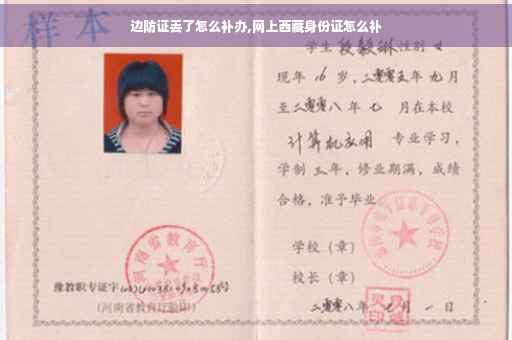 边防证丢了怎么补办,网上西藏身份证怎么补
样本
学生段毅琳性别女
现年16岁,二零零五年九月
至二零零八年七 月在本校
计算机应用 专业学习,
学制三年,修业期满,成绩
合格,准予毕业
学校(章)
校长(章)
二零零八年七月一日
河南省教育厅
豫教职专证字
(河南省教育厅验印)